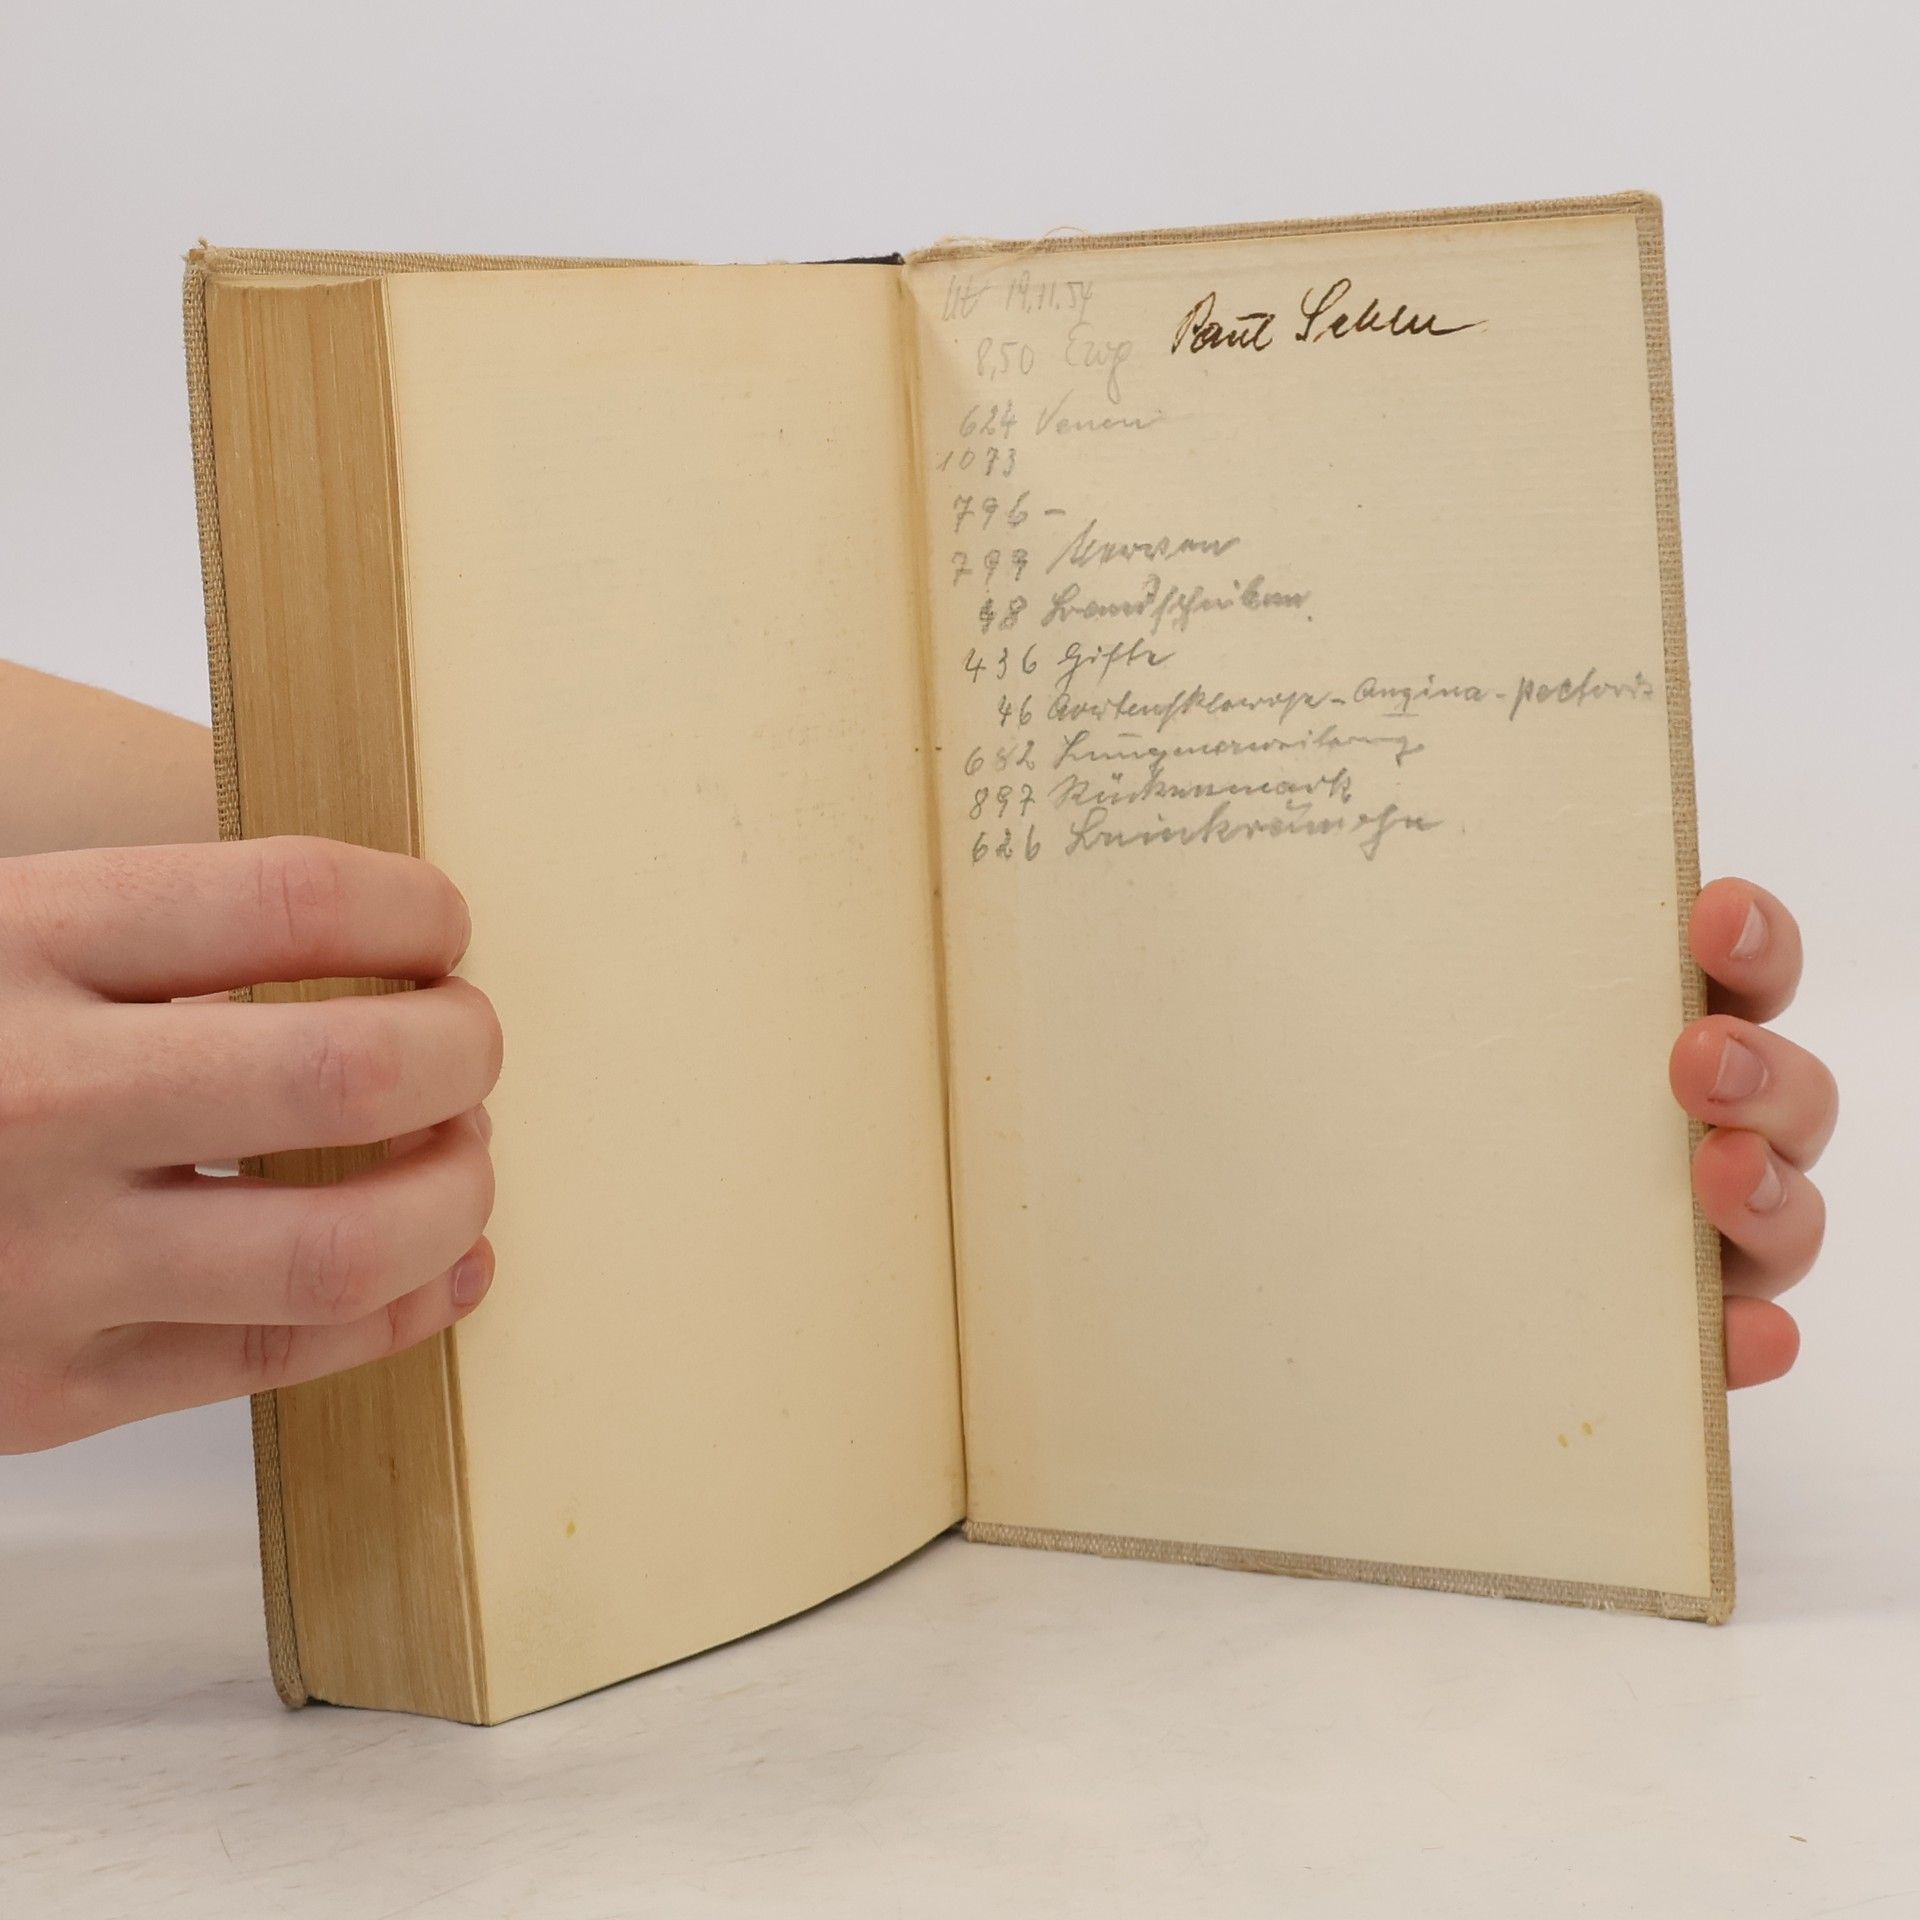 19.11.54
8,50
Paul
624 Venen
1073
796 –
799 Nerven
48 Bandscheiben.
436 Gifte
46 Aortensklerose – Angina – pectoris
682 Lungenerweiterung
897 Rückenmark
626 Beinkrämpfe